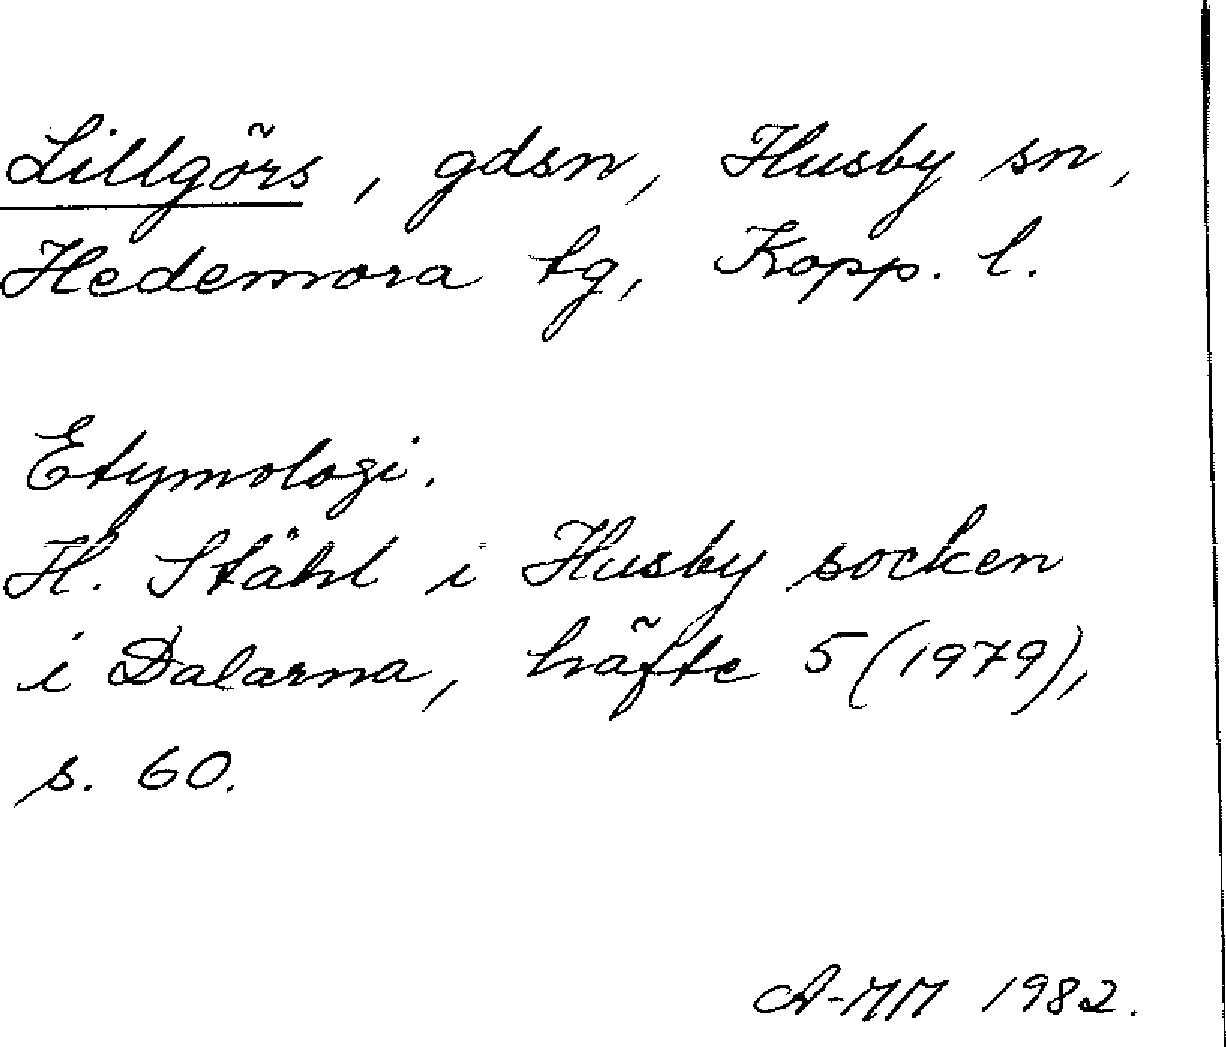 Lillgörs, gdsn, Husby sn,
Hedemora tg, Kopp. l.
Etymologi.
H. Ståhl i Husby socken
i Dalarna, häfte 5 (1979),
s. 60.
A-MM 1982.